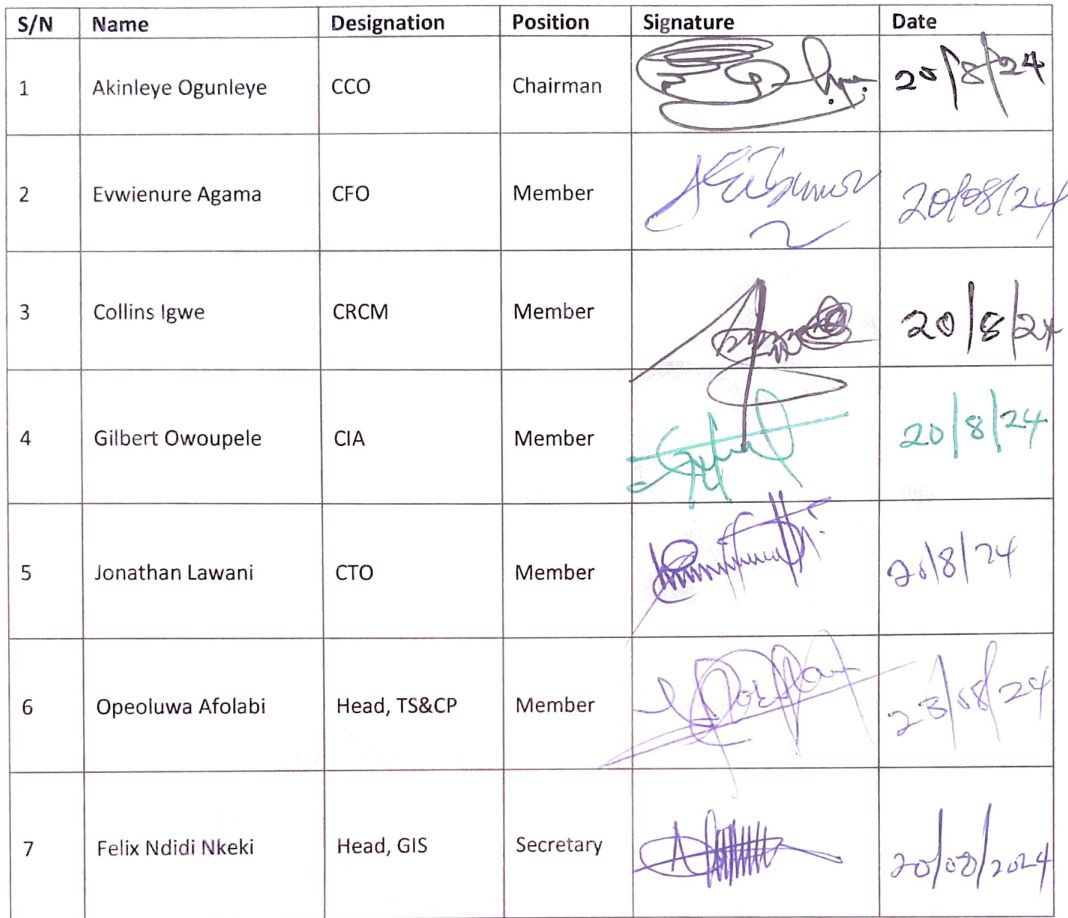 S/N Name Designation Position Signature Date
1 Akinleye Ogunleye CCO Chairman 20/8/24
2 Evwienure Agama CFO Member 20/08/24
3 Collins Igwe CRCM Member 20/8/24
4 Gilbert Owoupele CIA Member 20/8/24
5 Jonathan Lawani CTO Member 20/8/24
6 Opeoluwa Afolabi Head, TS&CP Member 23/08/24
7 Felix Ndidi Nkeki Head, GIS Secretary 20/08/2024